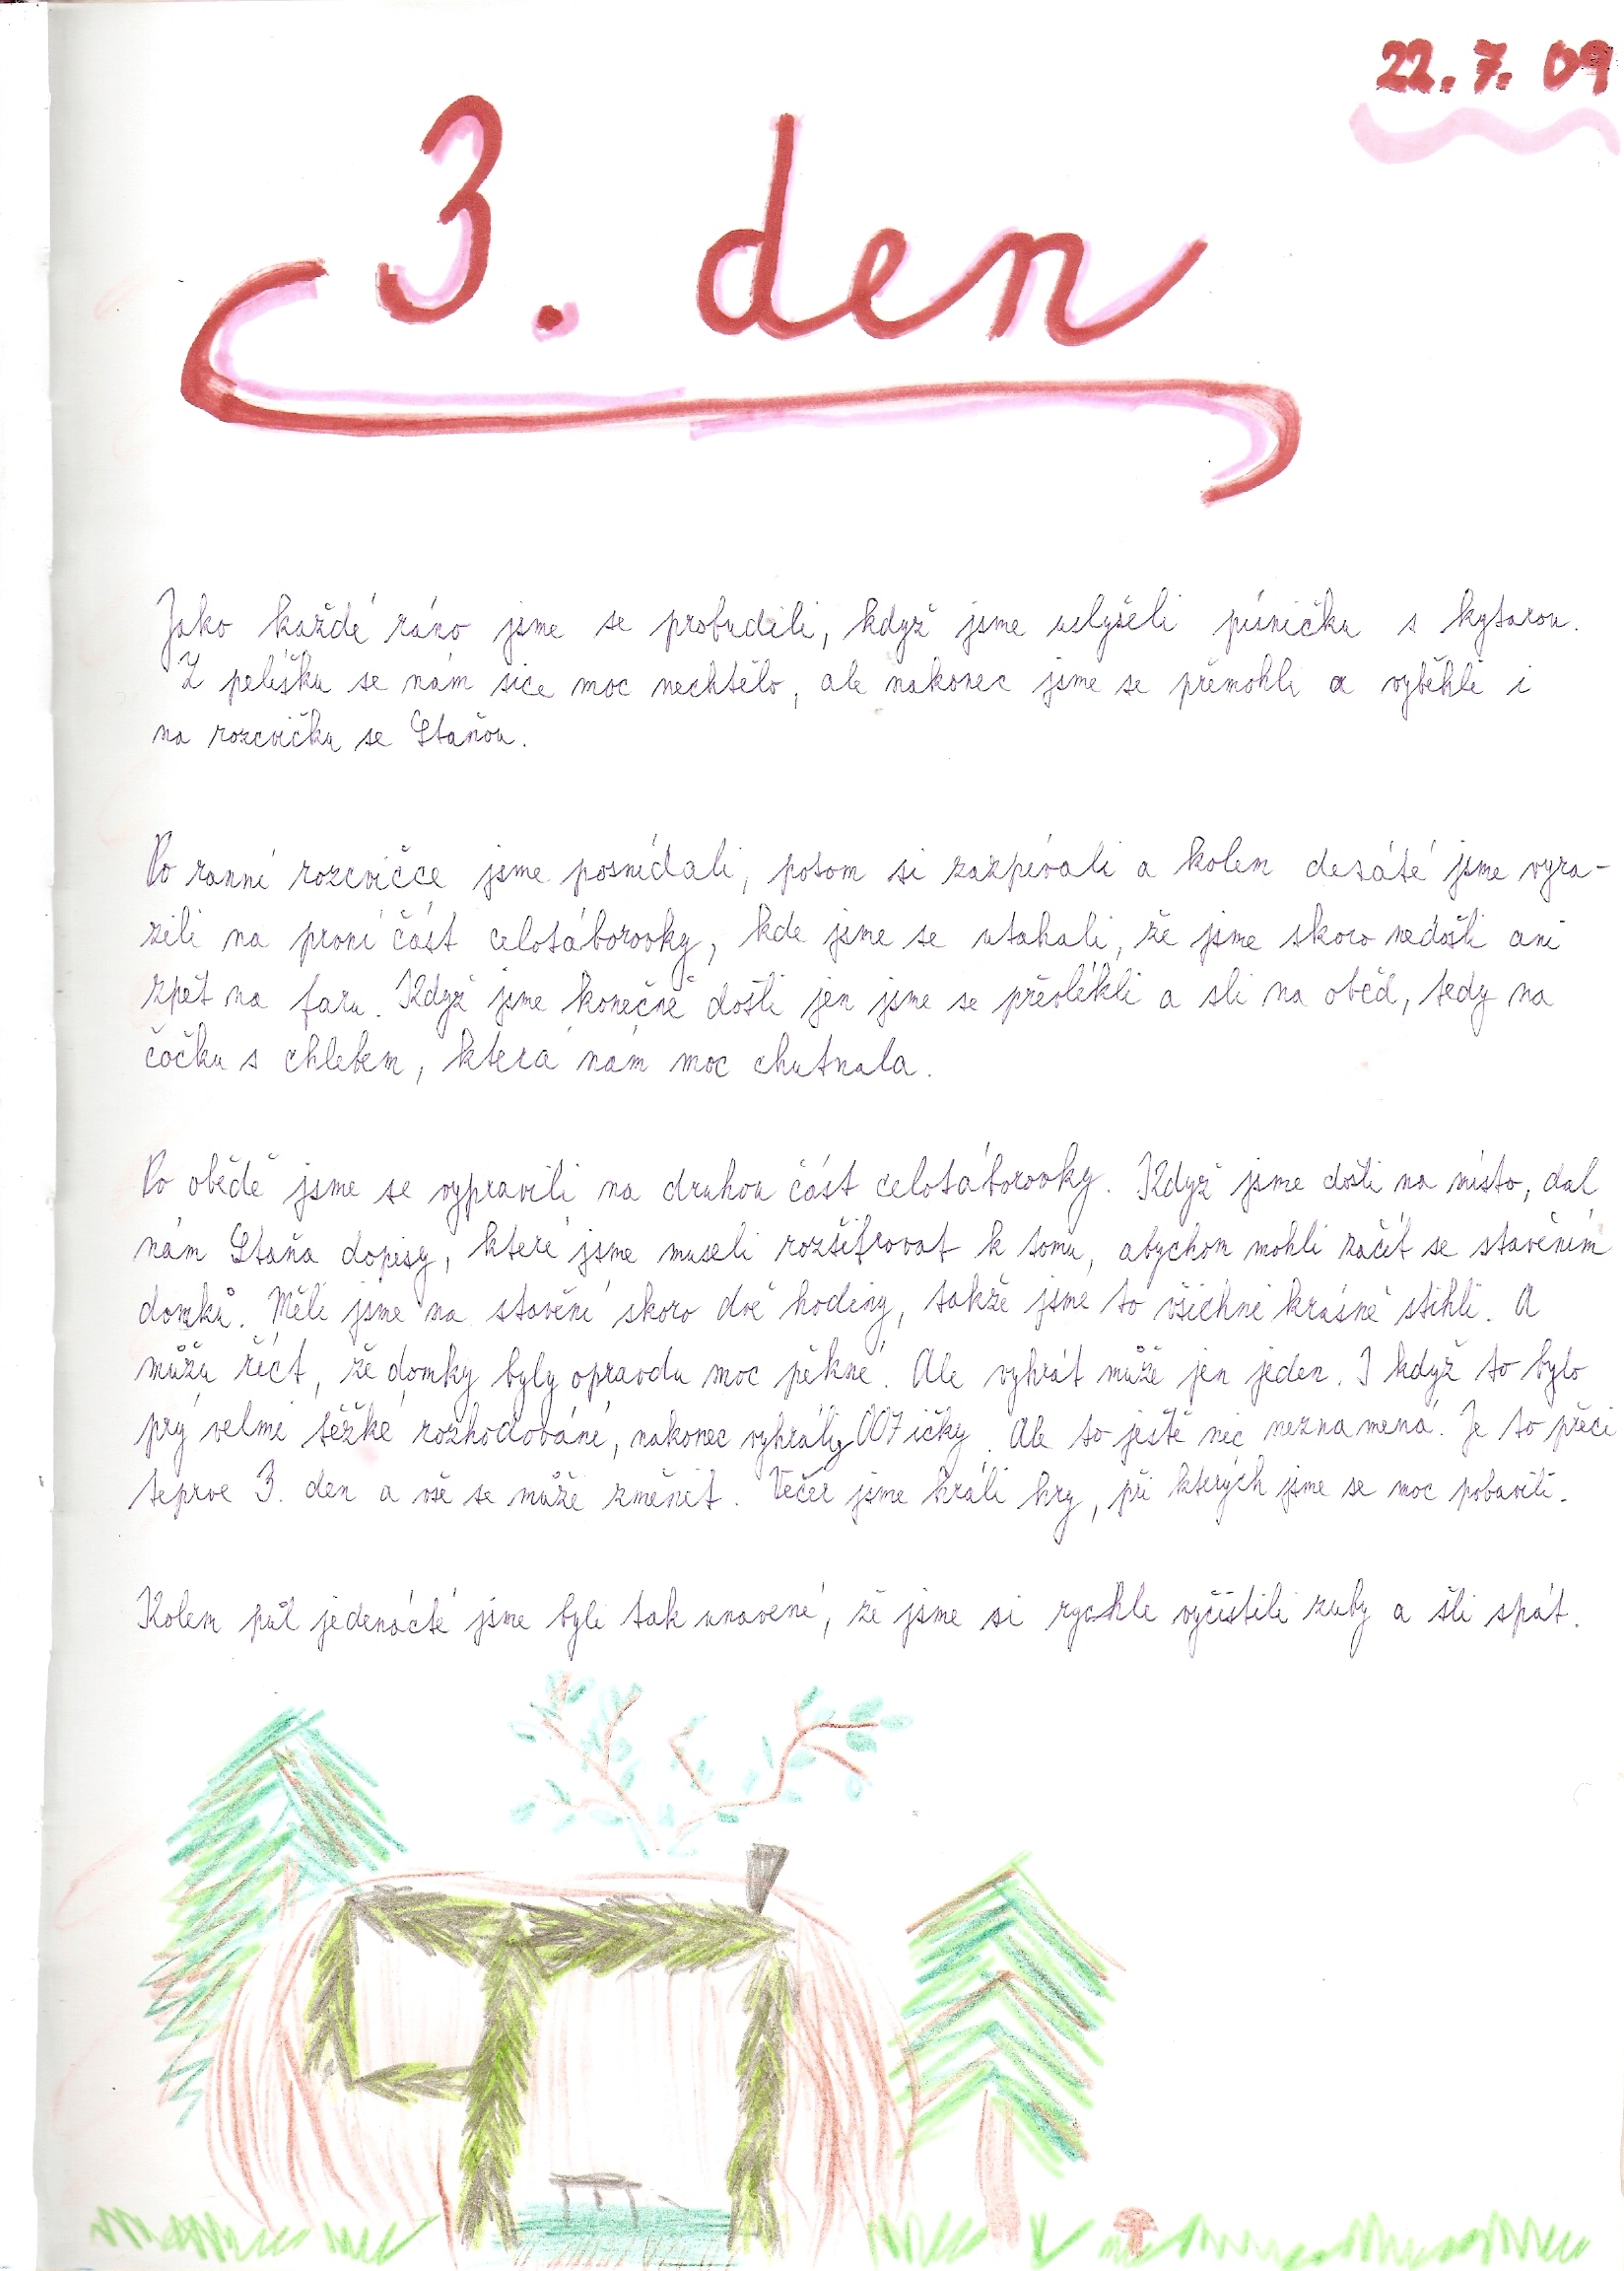 22. 7. 09
3. den
Jako každé ráno jsme se probudili, když jsme uslyšeli písničku s kytarou.
Z pelíšku se nám sice moc nechtělo, ale nakonec jsme se přemohli a vyběhli i
na rozcvičku se Staňou.
Po ranní rozcvičce jsme posnídali, potom si zazpívali a kolem desáté jsme vyra-
zili na první část celotáborovky, kde jsme se utahali, že jsme skoro nedošli ani
zpět na faru. Když jsme konečně došli jen jsme se převlékli a sli na oběd, tedy na
čočku s chlebem, která nám moc chutnala.
Po obědě jsme se vypravili na druhou část celotáborovky. Když jsme došli na místo, dal
nám Staňa dopisy, které jsme museli rozšifrovat k tomu, abychom mohli začít se stavěním
domků. Měli jsme na stavění skoro dvě hodiny, takže jsme to všichni krásně stihli. A
můžu říct, že domky byly opravdu moc pěkné. Ale vyhrát může jen jeden. I když to bylo
prý velmi těžké rozhodování, nakonec vyhrály 007ičky. Ale to ještě nic neznamená. Je to přeci
teprve 3. den a vše se může změnit. Večer jsme hráli hry, při kterých jsme se moc pobavili.
Kolem půl jedenácté jsme byli tak unavené, že jsme si rychle vyčistili zuby a šli spát.